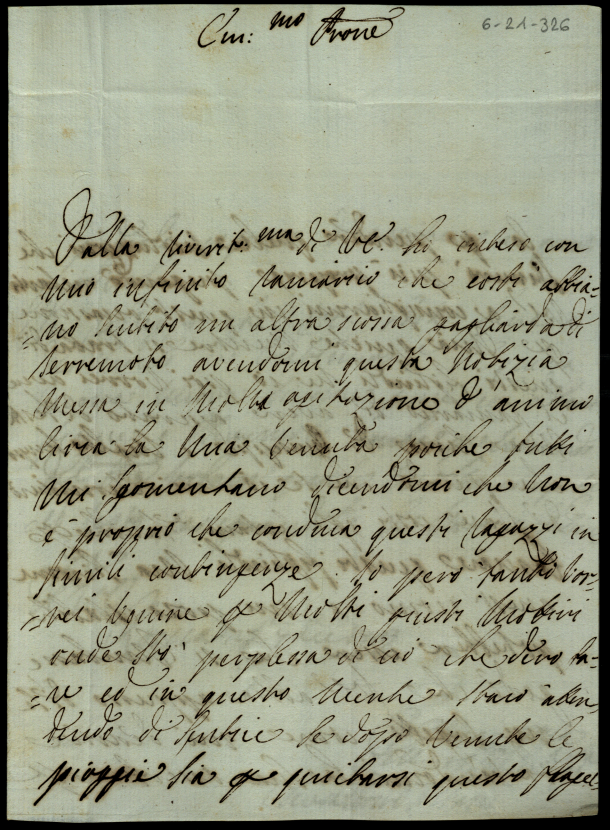 6-21-326
Em:mo Prone
Dalla riverit:ma di VE. ho inteso con
mio infinito ramarico che costì abbia-
=no sentito un altra scossa gagliarda di
terremoto avendomi questa notizia
messa in molta agitazione d'animo
circa la mia venuta poiche tutti
mi sgomentano dicendomi che non
è proprio che conduca questi ragazzi in
simili contingenze. Io però tanto vor-
=rei venire p molti giusti motivi
onde stò perplessa di ciò che devo fa-
=re ed in questo mentre starò atten-
dendo di sentire se dopo venute le
pioggie sia p quietarsi questo flagel-